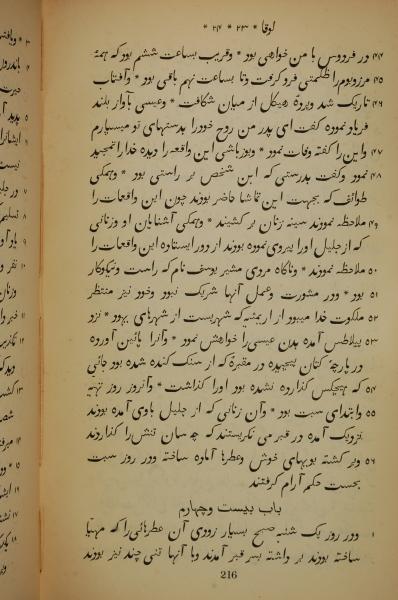 لوقا * ۲۳ * ۲۴ *
۴۴ در فردوس با من خواهی بود * وقریب بساعت ششم بود که همهٔ
۴۵ مرزوبوم را ظلمتی فرو گرفت وتا بساعت نهم باقی بود * وآفتاب
۴۶ تاریک شد وپردهٔ هیکل از میان شکافت * وعیسی بآواز بلند
فریاد نموده گفت ای پدر من روح خودرا بدستهای تو میسپارم
۴۷ واین را گفته وفات نمود * ویوزباشی این واقعه را دیده خدارا تمجید
۴۸ نمود وگفت بدرستی که این شخص بر راستی بود * وهمگی
طوائف که بجهت این تماشا حاضر بودند چون این واقعات را
۴۹ ملاحظه نمودند سینه زنان بر گشتند * وهمگی آشنایان او وزنانی
که از جلیل اورا پیروی نموده بودند از دور ایستاده این واقعات را
۵۰ ملاحظه نمودند * وناگاه مردی مشیر یوسف نام که راست ونیکوکار
۵۱ بود * ودر مشورت وعمل آنها شریک نبود وخود نیز منتظر
۵۲ ملکوت خدا میبود از ارمتیه که شهریست از شهرهای یهود * نزد
۵۳ پیلاطس آمده بدن عیسی را خواهش نمود * وآنرا پائین آورده
در پارچهٔ کتان پیچیده در مقبرهٔ که از سنگ کنده شده بود جائی
۵۴ که هیچکس گذارده نشده بود اورا گذاشت * وآنروز روز تهیّه
۵۵ وابتدای سبت بود * وآن زنانی که از جلیل باوی آمده بودند
نزدیک آمده در قبر می نگریستند که چه سان تنش را گذاردند
۵۶ وبر گشته بویهای خوش وعطرها آماده ساخته ودر روز سبت
بحسب حکم آرام گرفتند
باب بیست وچهارم
۱ ودر روز یک شنبه صبح بسیار زودی آن عطرهائی را که مهیّا
ساخته بودند بر داشته بسر قبر آمدند وبا آنها تنی چند نیز بودند
216